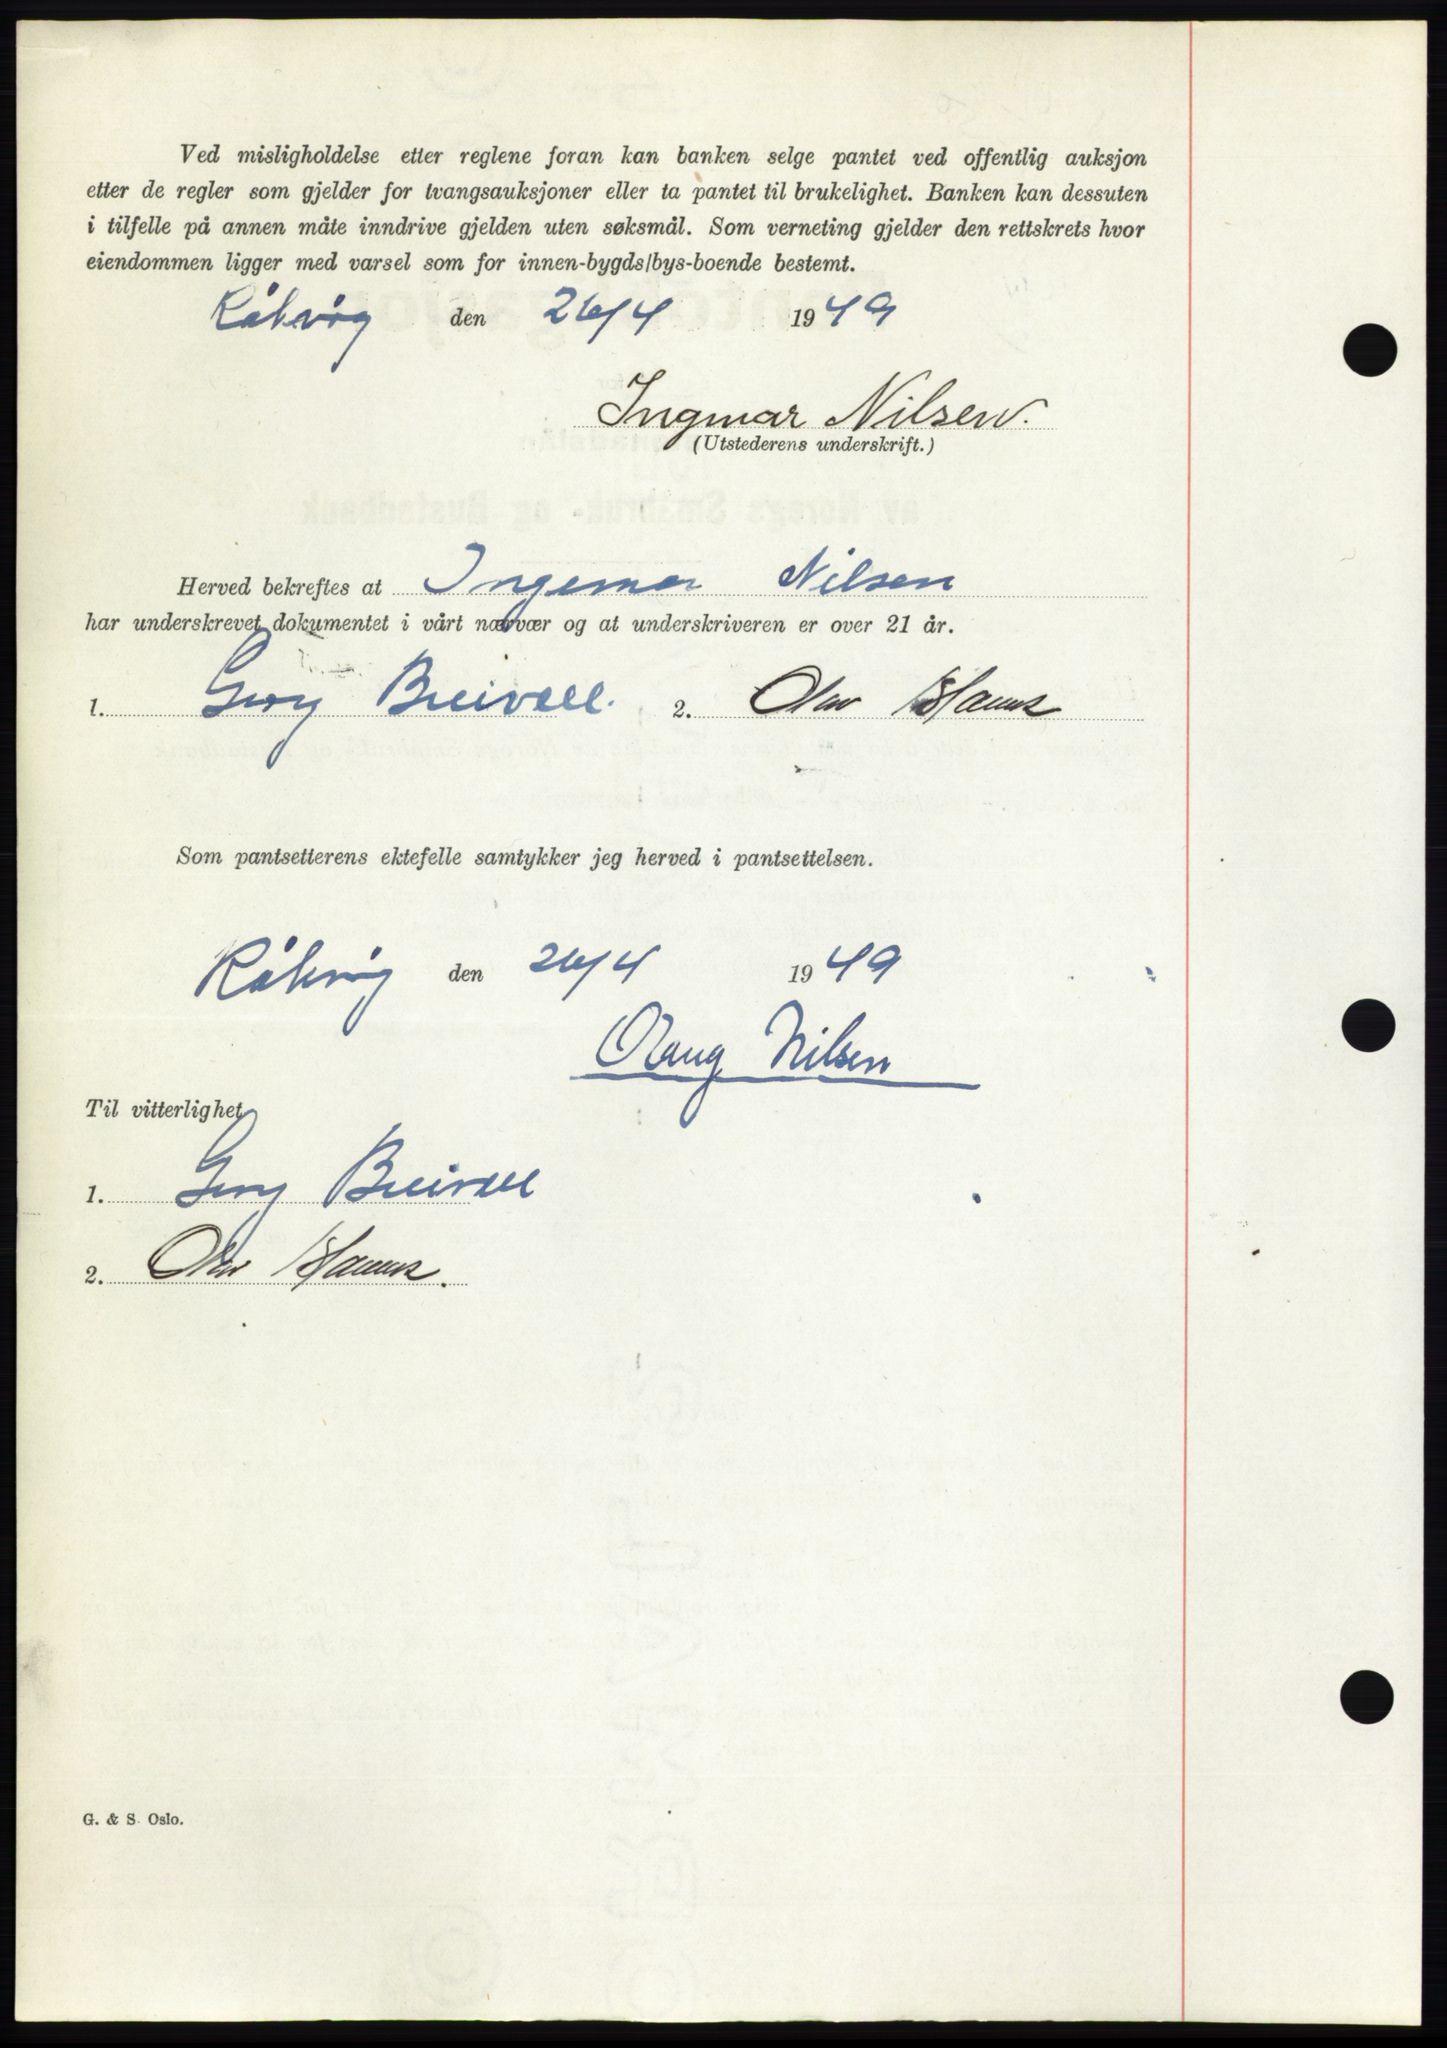 Ved misligholdelse etter reglene foran kan banken selge pantet ved offentlig auksjon
etter de regler som gjelder for tvangsauksjoner eller ta pantet til brukelighet. Banken kan dessuten
i tilfelle på annen måte inndrive gjelden uten søksmål. Som verneting gjelder den rettskrets hvor
eiendommen ligger med varsel som for innen-bygds/bys-boende bestemt.
den 26/4 1949
Ingmar Nilsen.
(Utstederens underskrift.)
Herved bekreftes at Ingemar Nilsen
har underskrevet dokumentet i vårt nærvær og at underskriveren er over 21 år.
1. Georg 2. Olav
Som pantsetterens ektefelle samtykker jeg herved i pantsettelsen.
den 26/4 1949
Olaug Nilsen
Til vitterlighet
1. Georg
2. Olav
G. & S. Oslo.